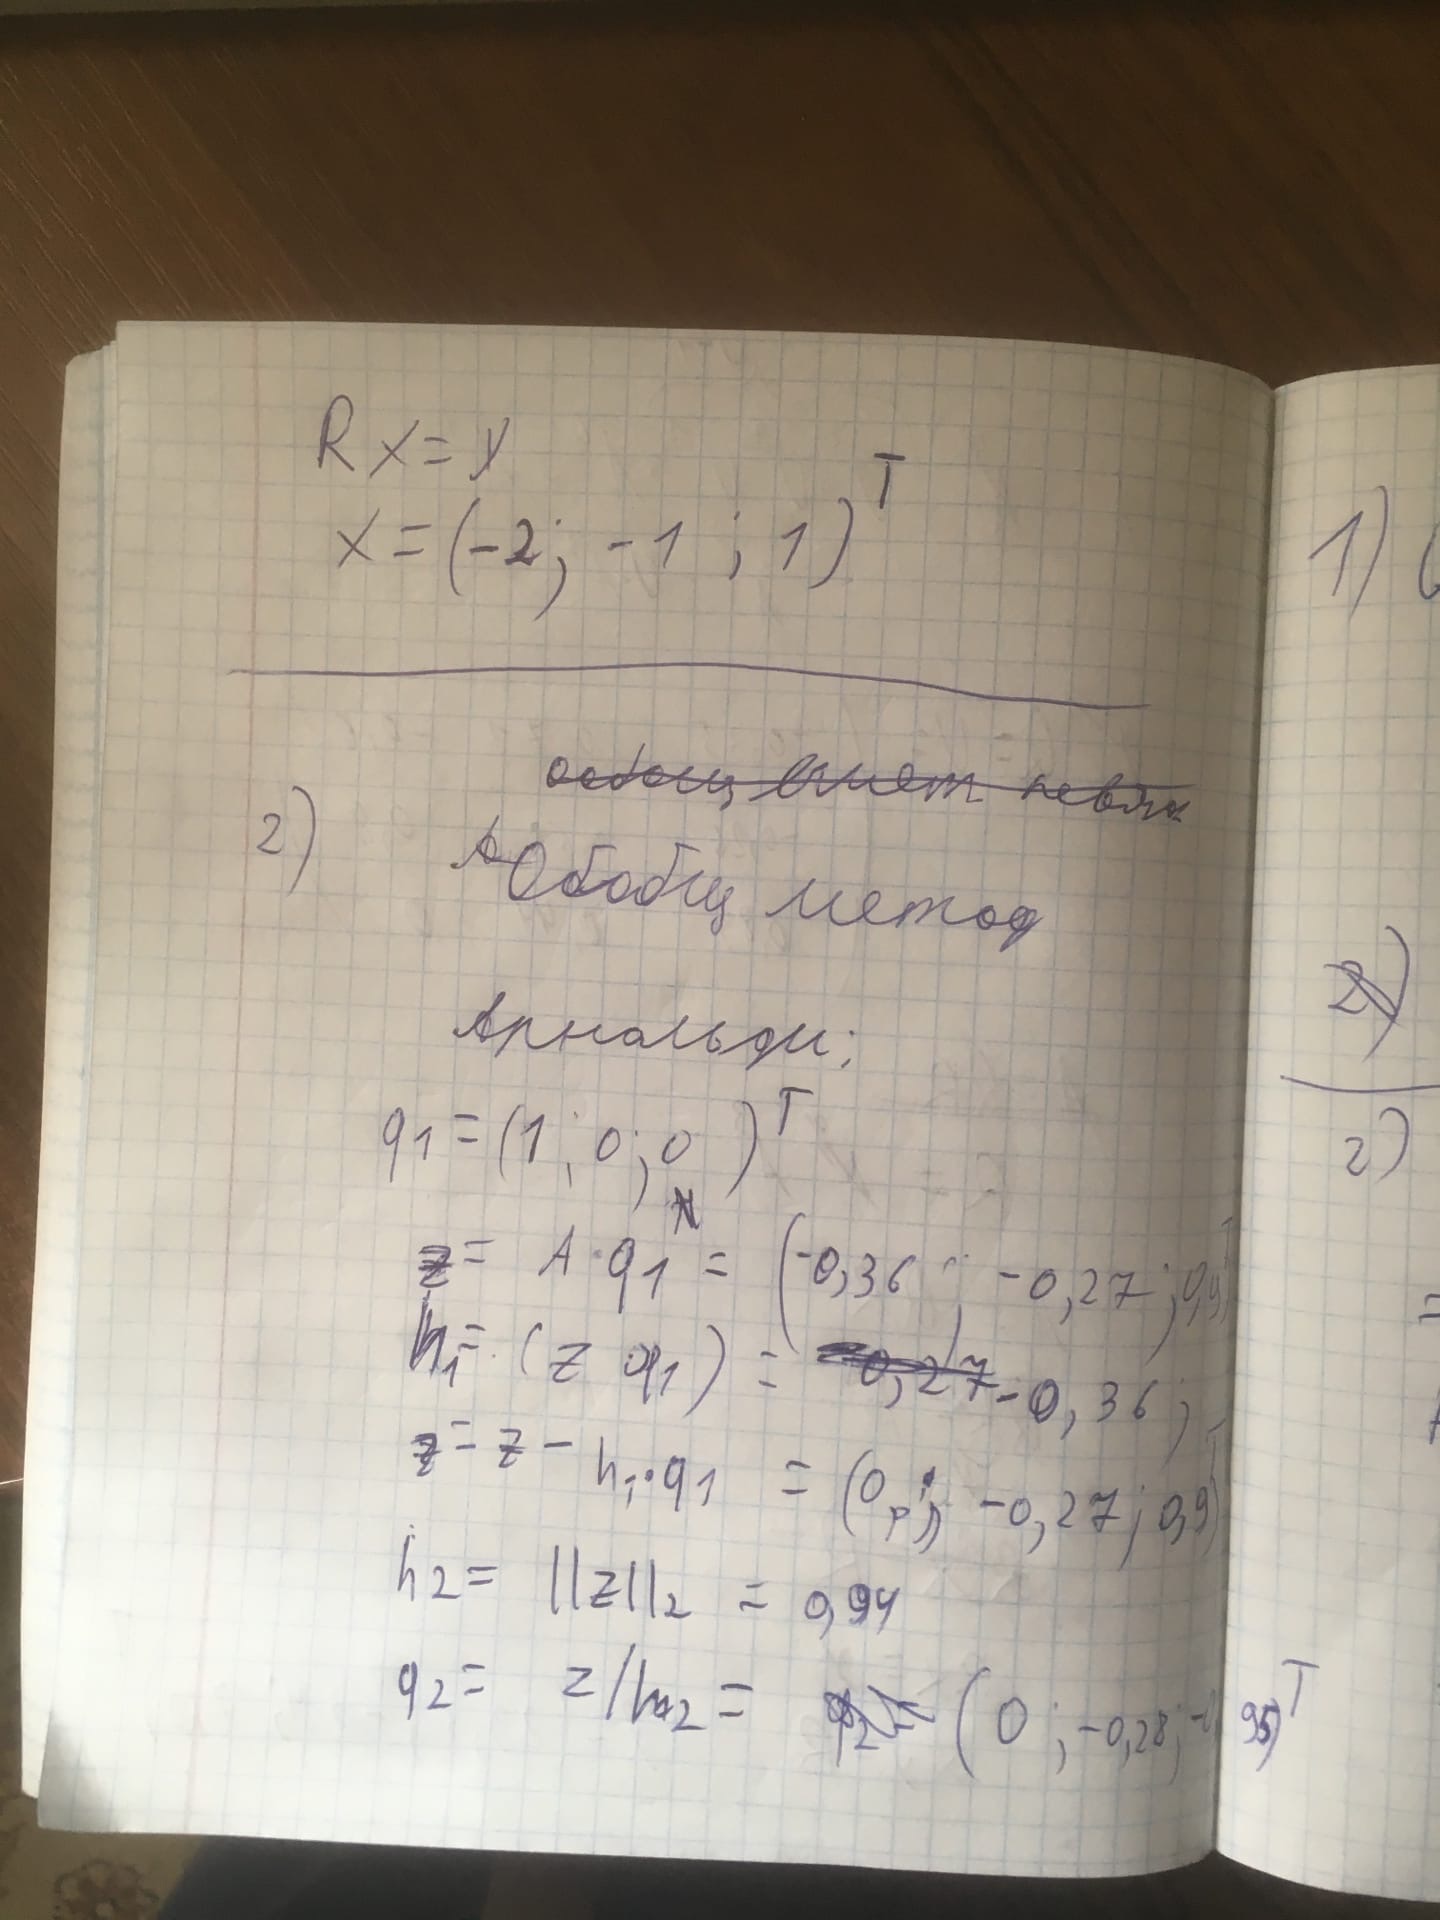 Rx=y
x=(-2; -1; 1)ᵀ
2) Обобщ метод
Арнольди:
q1=(1; 0; 0)ᵀ
z= A·q1 = (-0,36; -0,27; 0,9)ᵀ
h1= (z q1) = -0,36;
z= z - h1·q1 = (0; -0,27; 0,9)ᵀ
h2= ||z||2 = 0,94
q2= z/h2 = (0; -0,28; -0,95)ᵀ
1)
2)